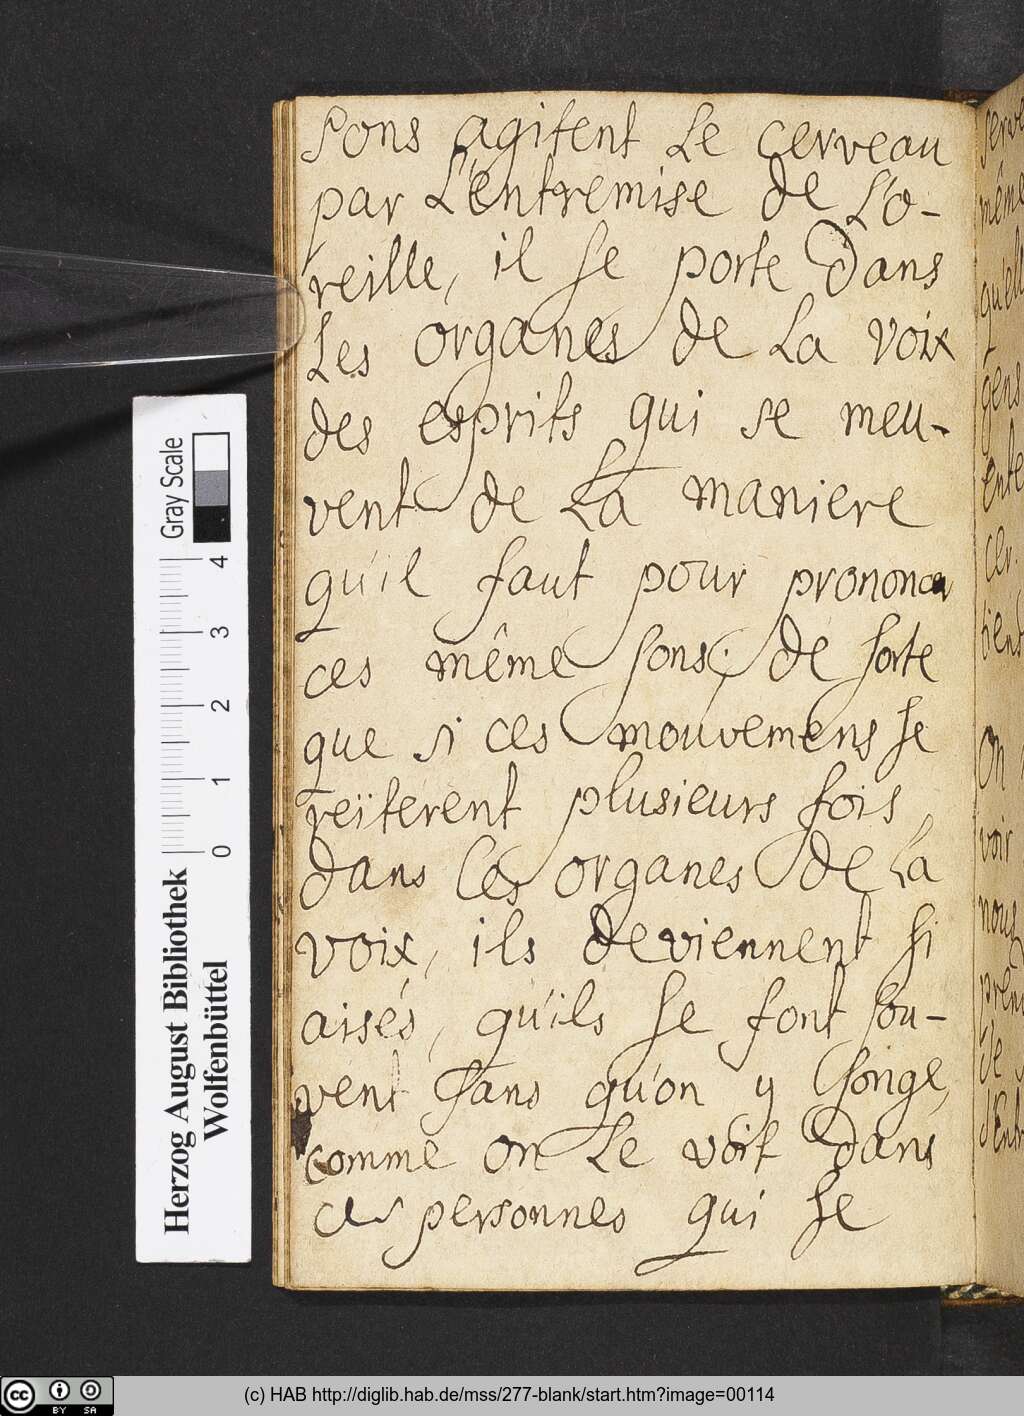 sons agitent Le cerveau
par L'entremise de L'o-
reille, il se porte dans
Les organes de La voix
des esprits qui se meu-
vent de La maniere
qu'il faut pour prononcer
ces même sons; de sorte
que si ces mouvemens se
reïterent plusieurs fois
dans les organes de La
voix, ils deviennent si
aisés, qu'ils se font sou-
vent sans qu'on y songe,
comme on Le voit dans
ces personnes qui se
même
gens
cer.
On
voir
nous
de
Gray Scale
4
3
2
1
0
Herzog August Bibliothek
Wolfenbüttel
cc BY SA
(c) HAB http://diglib.hab.de/mss/277-blank/start.htm?image=00114